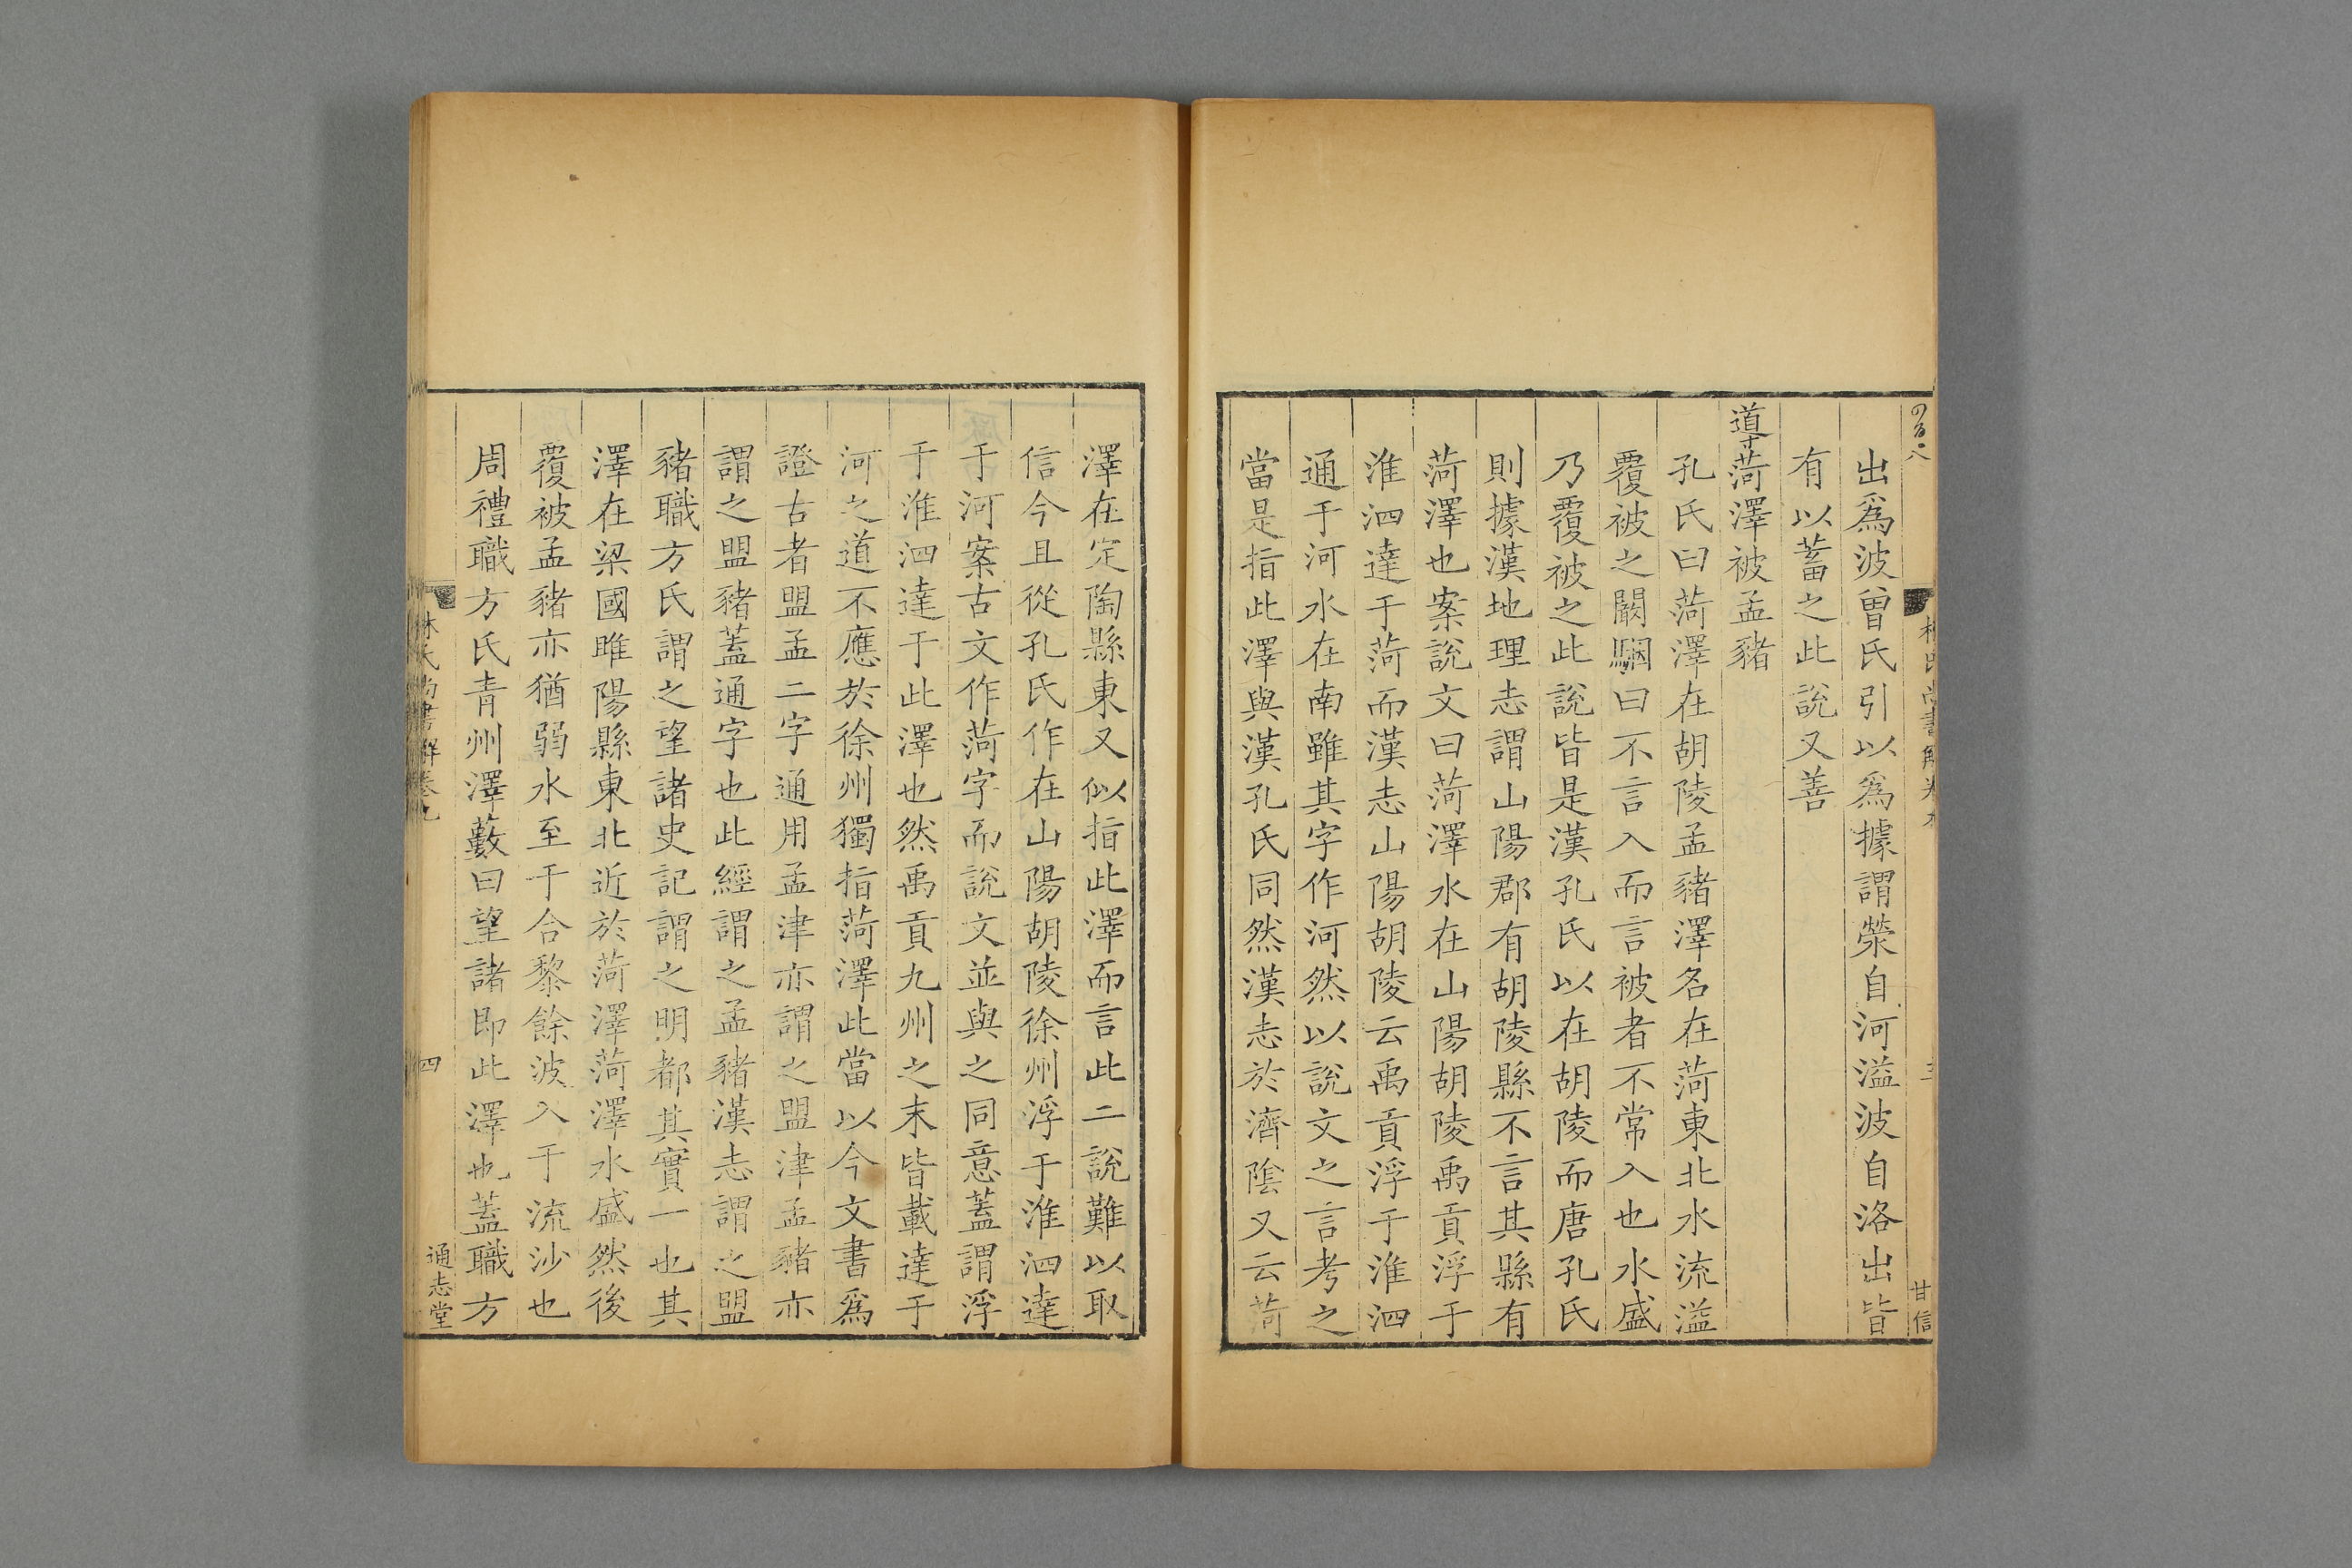 出爲波曾氏引以爲據謂滎自河溢波自洛出皆
有以蓄之此說又善
導菏澤被孟豬
孔氏曰菏澤在胡陵孟豬澤名在菏東北水流溢
覆被之闞駰曰不言入而言被者不常入也水盛
乃覆被之此說皆是漢孔氏以在胡陵而唐孔氏
則據漢地理志謂山陽郡有胡陵縣不言其縣有
菏澤也案說文曰菏澤水在山陽胡陵禹貢浮于
淮泗達于菏而漢志山陽胡陵云禹貢浮于淮泗
通于河水在南雖其字作河然以說文之言考之
當是指此澤與漢孔氏同然漢志於濟陰又云菏
甘信
澤在定陶縣東又似指此澤而言此二說難以取
信今且從孔氏作在山陽胡陵徐州浮于淮泗達
于河案古文作菏字而說文並與之同意蓋謂浮
于淮泗達于此澤也然禹貢九州之末皆載達于
河之道不應於徐州獨指菏澤此當以今文書爲
證古者盟孟二字通用孟津亦謂之盟津孟豬亦
謂之盟豬蓋通字也此經謂之孟豬漢志謂之盟
豬職方氏謂之望諸史記謂之明都其實一也其
澤在梁國睢陽縣東北近於菏澤菏澤水盛然後
覆被孟豬亦猶弱水至于合黎餘波入于流沙也
周禮職方氏青州澤藪曰望諸即此澤也蓋職方
林氏尚書解卷九
四
通志堂